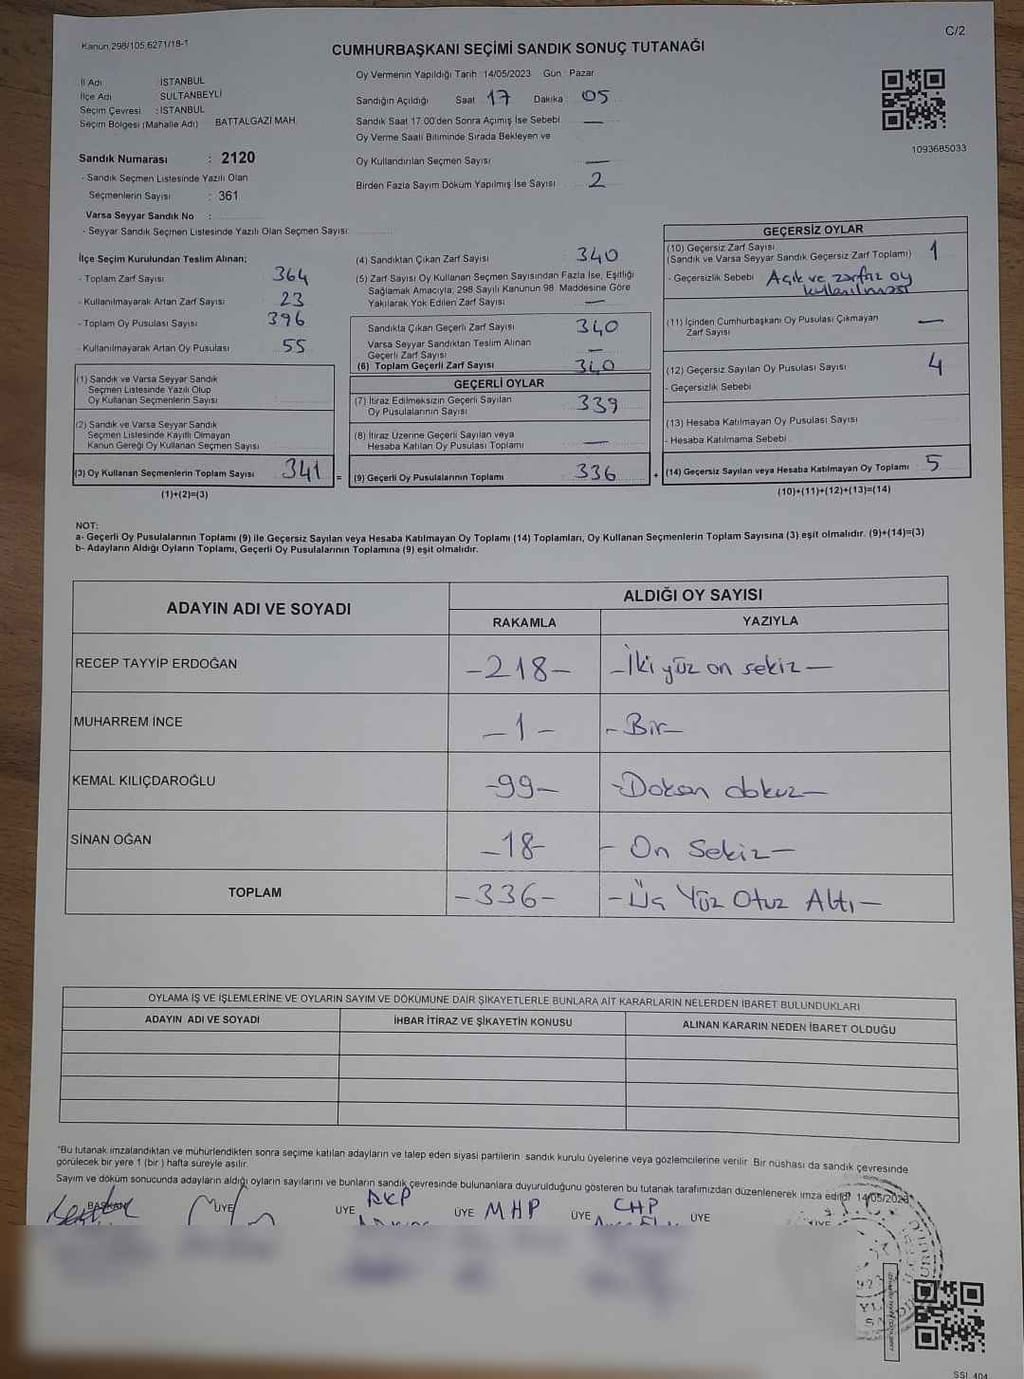 Kanun 298/105,6271/18-1
C/2
CUMHURBAŞKANI SEÇİMİ SANDIK SONUÇ TUTANAĞI
İl Adı İSTANBUL
İlçe Adı SULTANBEYLİ
Seçim Çevresi : İSTANBUL
Seçim Bölgesi (Mahalle Adı) BATTALGAZİ MAH.
Sandık Numarası : 2120
- Sandık Seçmen Listesinde Yazılı Olan
Seçmenlerin Sayısı : 361
Varsa Seyyar Sandık No :
- Seyyar Sandık Seçmen Listesinde Yazılı Olan Seçmen Sayısı:
Oy Vermenin Yapıldığı Tarih 14/05/2023 Gün Pazar
Sandığın Açıldığı Saat 17 Dakika 05
Sandık Saat 17.00'den Sonra Açımış İse Sebebi —
Oy Verme Saati Bitiminde Sırada Bekleyen ve
Oy Kullandırılan Seçmen Sayısı —
Birden Fazla Sayım Döküm Yapılmış İse Sayısı 2
1093685033
İlçe Seçim Kurulundan Teslim Alınan;
- Toplam Zarf Sayısı 364
- Kullanılmayarak Artan Zarf Sayısı 23
- Toplam Oy Pusulası Sayısı 396
- Kullanılmayarak Artan Oy Pusulası 55
(1) Sandık ve Varsa Seyyar Sandık
Seçmen Listesinde Yazılı Olup
Oy Kullanan Seçmenlerin Sayısı
(2) Sandık ve Varsa Seyyar Sandık
Seçmen Listesinde Kayıtlı Olmayan
Kanun Gereği Oy Kullanan Seçmen Sayısı
(3) Oy Kullanan Seçmenlerin Toplam Sayısı 341 =
(1)+(2)=(3)
(4) Sandıktan Çıkan Zarf Sayısı 340
(5) Zarf Sayısı Oy Kullanan Seçmen Sayısından Fazla İse, Eşitliği
Sağlamak Amacıyla, 298 Sayılı Kanunun 98. Maddesine Göre
Yakılarak Yok Edilen Zarf Sayısı —
Sandıkta Çıkan Geçerli Zarf Sayısı 340
Varsa Seyyar Sandıktan Teslim Alınan
Geçerli Zarf Sayısı —
(6) Toplam Geçerli Zarf Sayısı 340
GEÇERLİ OYLAR
(7) İtiraz Edilmeksizin Geçerli Sayılan
Oy Pusulalarının Sayısı 339
(8) İtiraz Üzerine Geçerli Sayılan veya
Hesaba Katılan Oy Pusulası Toplamı —
(9) Geçerli Oy Pusulalarının Toplamı 336 +
GEÇERSİZ OYLAR
(10) Geçersiz Zarf Sayısı
(Sandık ve Varsa Seyyar Sandık Geçersiz Zarf Toplamı) 1
- Geçersizlik Sebebi Açık ve zarfsız oy
kullanılması
(11) İçinden Cumhurbaşkanı Oy Pusulası Çıkmayan
Zarf Sayısı —
(12) Geçersiz Sayılan Oy Pusulası Sayısı 4
- Geçersizlik Sebebi
(13) Hesaba Katılmayan Oy Pusulası Sayısı
- Hesaba Katılmama Sebebi
(14) Geçersiz Sayılan veya Hesaba Katılmayan Oy Toplamı 5
(10)+(11)+(12)+(13)=(14)
NOT:
a- Geçerli Oy Pusulalarının Toplamı (9) ile Geçersiz Sayılan veya Hesaba Katılmayan Oy Toplamı (14) Toplamları, Oy Kullanan Seçmenlerin Toplam Sayısına (3) eşit olmalıdır. (9)+(14)=(3)
b- Adayların Aldığı Oyların Toplamı, Geçerli Oy Pusulalarının Toplamına (9) eşit olmalıdır.
ADAYIN ADI VE SOYADI ALDIĞI OY SAYISI
RAKAMLA YAZIYLA
RECEP TAYYİP ERDOĞAN -218- -İki yüz on sekiz-
MUHARREM İNCE -1- -Bir-
KEMAL KILIÇDAROĞLU -99- -Doksan dokuz-
SİNAN OĞAN -18- -On Sekiz-
TOPLAM -336- -Üç Yüz Otuz Altı-
OYLAMA İŞ VE İŞLEMLERİNE VE OYLARIN SAYIM VE DÖKÜMÜNE DAİR ŞİKAYETLERLE BUNLARA AİT KARARLARIN NELERDEN İBARET BULUNDUKLARI
ADAYIN ADI VE SOYADI İHBAR İTİRAZ VE ŞİKAYETİN KONUSU ALINAN KARARIN NEDEN İBARET OLDUĞU
"Bu tutanak imzalandıktan ve mühürlendikten sonra seçime katılan adayların ve talep eden siyasi partilerin sandık kurulu üyelerine veya gözlemcilerine verilir. Bir nüshası da sandık çevresinde
görülecek bir yere 1 (bir) hafta süreyle asılır.
Sayım ve döküm sonucunda adayların aldığı oyların sayılarını ve bunların sandık çevresinde bulunanlara duyurulduğunu gösteren bu tutanak tarafımızdan düzenlenerek imza edildi 14/05/2023
BAŞKAN ÜYE ÜYE AKP ÜYE MHP ÜYE CHP ÜYE ÜYE
SSI 404